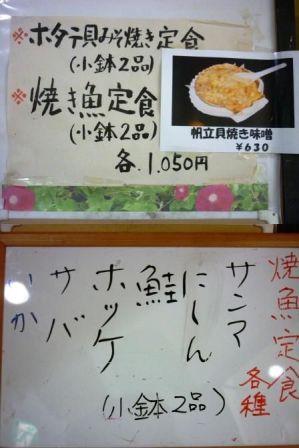 ※ホタテ貝みそ焼き定食
(小鉢2品)
※焼き魚定食
(小鉢2品)
各1,050円
帆立貝焼き味噌
¥630
焼魚定食
各種
サンマ
にしん
鮭
ホッケ
サバ
いか
(小鉢2品)